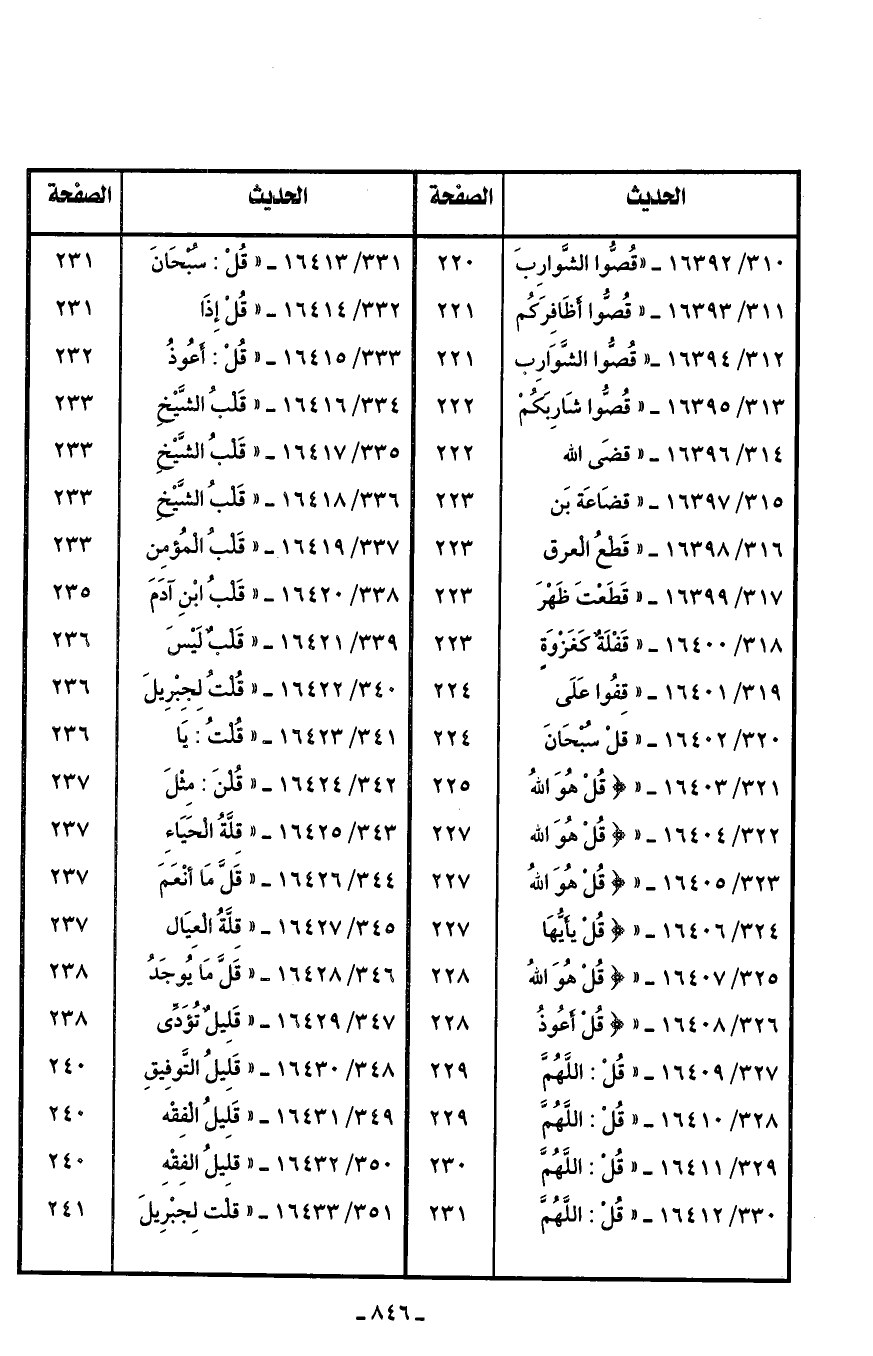 الحديث الصفحة الحديث الصفحة
٣١٠/ ١٦٣٩٢ ـ «قُصُّوا الشَّوارِبَ ٢٢٠ ٣٣١/ ١٦٤١٣ ـ « قُلْ : سُبْحَانَ ٢٣١
٣١١/ ١٦٣٩٣ ـ « قُصُّوا أَظَافِرَكُم ٢٢١ ٣٣٢/ ١٦٤١٤ ـ « قُلْ إِذَا ٢٣١
٣١٢/ ١٦٣٩٤ ـ« قُصُّوا الشَّوَارِب ٢٢١ ٣٣٣/ ١٦٤١٥ ـ « قُلْ : أَعُوذُ ٢٣٢
٣١٣/ ١٦٣٩٥ ـ « قُصُّوا شَارِبَكُمْ ٢٢٢ ٣٣٤/ ١٦٤١٦ ـ « قَلْبُ الشَّيْخِ ٢٣٣
٣١٤/ ١٦٣٩٦ ـ « قضَى الله ٢٢٢ ٣٣٥/ ١٦٤١٧ ـ « قَلْبُ الشَّيْخِ ٢٣٣
٣١٥/ ١٦٣٩٧ ـ « قضَاعَة بَن ٢٢٣ ٣٣٦/ ١٦٤١٨ ـ « قَلْبُ الشَّيْخِ ٢٣٣
٣١٦/ ١٦٣٩٨ ـ « قَطْعُ الْعرق ٢٢٣ ٣٣٧/ ١٦٤١٩ ـ « قَلْبُ الْمُؤمِن ٢٣٣
٣١٧/ ١٦٣٩٩ ـ « قَطَعْتَ ظَهْرَ ٢٢٣ ٣٣٨/ ١٦٤٢٠ ـ « قَلْبُ ابْنِ آدَمَ ٢٣٥
٣١٨/ ١٦٤٠٠ ـ « قَفْلَةٌ كَغَزْوَةٍ ٢٢٣ ٣٣٩/ ١٦٤٢١ ـ « قَلْبٌ لَيْسَ ٢٣٦
٣١٩/ ١٦٤٠١ ـ « قِفُوا عَلَى ٢٢٤ ٣٤٠/ ١٦٤٢٢ ـ « قُلْتُ لِجِبْرِيلَ ٢٣٦
٣٢٠/ ١٦٤٠٢ ـ « قلْ سُبْحَانَ ٢٢٤ ٣٤١/ ١٦٤٢٣ ـ « قُلْتُ : يَا ٢٣٦
٣٢١/ ١٦٤٠٣ ـ « ﴿ قُلْ هُوَ اللهُ ٢٢٥ ٣٤٢/ ١٦٤٢٤ ـ « قُلْنَ : مِثْلَ ٢٣٧
٣٢٢/ ١٦٤٠٤ ـ « ﴿ قُلْ هُوَ الله ٢٢٧ ٣٤٣/ ١٦٤٢٥ ـ « قِلَّةُ الْحَيَاءِ ٢٣٧
٣٢٣/ ١٦٤٠٥ ـ « ﴿ قُلْ هُوَ اللهُ ٢٢٧ ٣٤٤/ ١٦٤٢٦ ـ « قَلَّ مَا أَنْعَمَ ٢٣٧
٣٢٤/ ١٦٤٠٦ ـ « ﴿ قُلْ يأَيُّهَا ٢٢٧ ٣٤٥/ ١٦٤٢٧ ـ « قِلَّةُ الْعِيَال ٢٣٧
٣٢٥/ ١٦٤٠٧ ـ « ﴿ قُلْ هُوَ اللهُ ٢٢٨ ٣٤٦/ ١٦٤٢٨ ـ « قَلَّ مَا يُوجَدُ ٢٣٨
٣٢٦/ ١٦٤٠٨ ـ « ﴿ قُلْ أَعُوذُ ٢٢٨ ٣٤٧/ ١٦٤٢٩ ـ « قَلِيلٌ تُؤَدِّى ٢٣٨
٣٢٧/ ١٦٤٠٩ ـ « قُلْ : اللَّهُمَّ ٢٢٩ ٣٤٨/ ١٦٤٣٠ ـ « قَلِيلُ التَّوفِيقِ ٢٤٠
٣٢٨/ ١٦٤١٠ ـ « قُلْ : اللَّهُمَّ ٢٢٩ ٣٤٩/ ١٦٤٣١ ـ « قَلِيلُ الْفِقْه ٢٤٠
٣٢٩/ ١٦٤١١ ـ « قُلْ : اللَّهُمَّ ٢٣٠ ٣٥٠/ ١٦٤٣٢ ـ « قلِيلُ الفِقْهِ ٢٤٠
٣٣٠/ ١٦٤١٢ ـ « قُلْ : اللَّهُمَّ ٢٣١ ٣٥١/ ١٦٤٣٣ ـ « قلْت لِجبْرِيلَ ٢٤١
ـ ٨٤٦ ـ